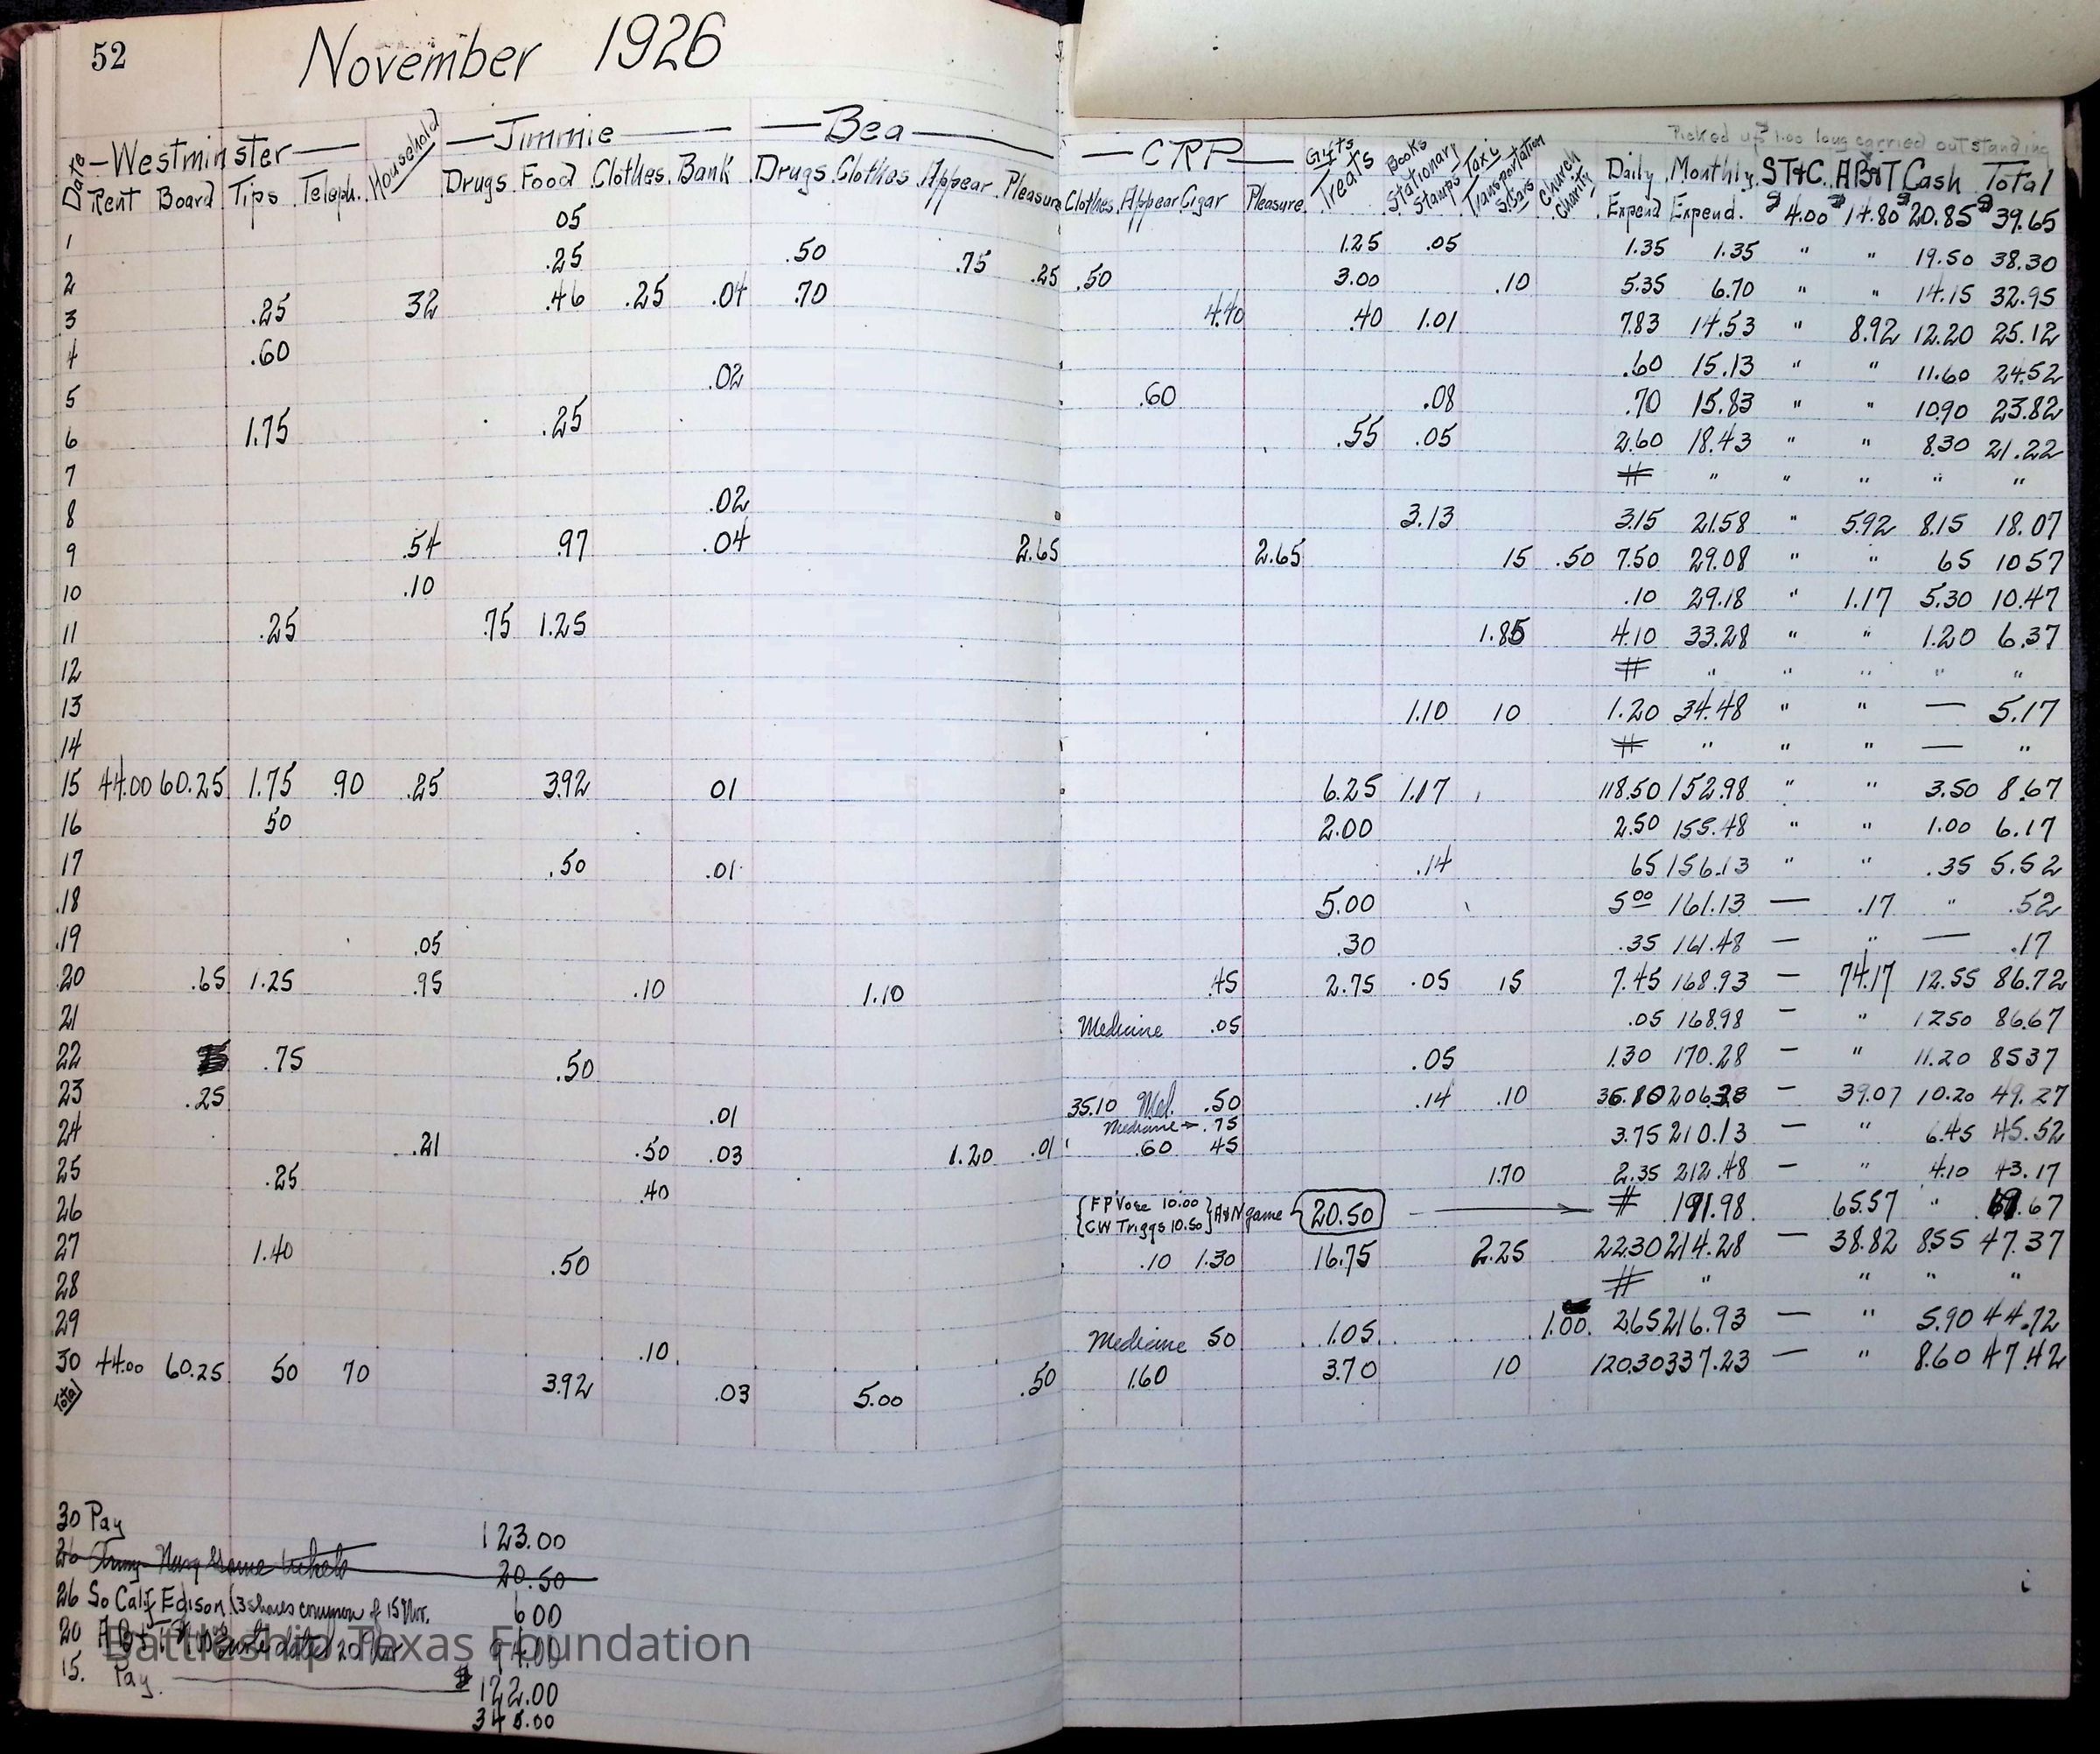 52
November 1926
Picked up 1.00 long carried outstanding
Date —Westminster— Household —Jimmie— —Bea— —CRP— Gifts Treats Books Stationary Stamps Taxi Transportation S. Cars Church Charity Daily Monthly ST&C. AB&T Cash Total
Rent Board Tips Teleph. Drugs Food Clothes Bank Drugs Clothes Appear Pleasure Clothes Appear Cigar Pleasure Expend Expend. $4.00 $14.80 $20.85 $39.65
1 05 1.25 .05 1.35 1.35 " " 19.50 38.30
2 .25 .50 .75 .25 .50 3.00 .10 5.35 6.70 " " 14.15 32.95
3 .25 32 .46 .25 .04 .70 4.40 .40 1.01 7.83 14.53 " 8.92 12.20 25.12
4 .60 .60 15.13 " " 11.60 24.52
5 .02 .60 .08 .70 15.83 " " 10.90 23.82
6 1.75 .25 .55 .05 2.60 18.43 " " 8.30 21.22
7 " " " " "
8 .02 3.13 3.15 21.58 " 5.92 8.15 18.07
9 .54 .97 .04 2.65 2.65 15 .50 7.50 29.08 " " 65 10 57
10 .10 .10 29.18 " 1.17 5.30 10.47
11 .25 .75 1.25 1.85 4.10 33.28 " " 1.20 6.37
12 " " " " "
13 1.10 10 1.20 34.48 " " — 5.17
14 " " " — "
15 44.00 60.25 1.75 .90 .25 3.92 01 6.25 1.17 118.50 152.98 " " 3.50 8.67
16 50 2.00 2.50 155.48 " " 1.00 6.17
17 .50 .01 .14 65 156.13 " " .35 5.52
18 5.00 5 00 161.13 — .17 " .52
19 .05 .30 .35 161.48 — " — .17
20 .65 1.25 .95 .10 1.10 .45 2.75 .05 15 7.45 168.93 — 74.17 12.55 86.72
21 Medicine .05 .05 168.98 — " 12 50 86.67
22 .75 .50 .05 1.30 170.28 — " 11.20 85 37
23 .25 .01 35.10 Med. .50 .14 .10 36.10 206.38 — 39.07 10.20 49.27
Medicine → .75
24 .21 .50 .03 1.20 .01 .60 45 3.75 210.13 — " 6.45 45.52
25 .25 .40 1.70 2.35 212.48 — " 4.10 43.17
26 {FP Vose 10.00 CW Triggs 10.50} A&N game 20.50 191.98 65.57 " .67
27 1.40 .50 .10 1.30 16.75 2.25 22.30 214.28 — 38.82 8.55 47.37
28 " " " "
29 .10 Medicine 50 1.05 1.00 2.65 216.93 — " 5.90 44.72
30 44.00 60.25 50 70 3.92 .03 5.00 .50 1.60 3.70 10 120.30 337.23 — " 8.60 47.42
Total
30 Pay 123.00
26 Army-Navy Game tickets 20.50
26 So Calif Edison (3 shares common of 15 Nov. 6 00
20 AB&T note dated 20 Nov 94.00
Battleship Texas Foundation
15. Pay — $122.00
345.00